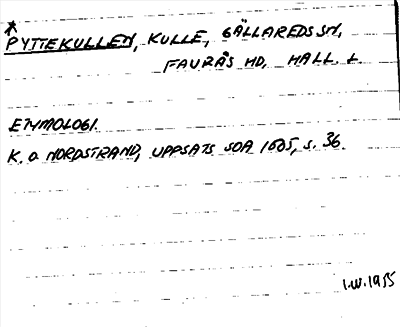 *
PYTTEKULLEN, KULLE, GÄLLAREDS SN,
FAURÅS HD, HALL. L.
ETYMOLOGI.
K. O. NORDSTRAND, UPPSATS SOA 1605, s. 36.
I.W. 1955